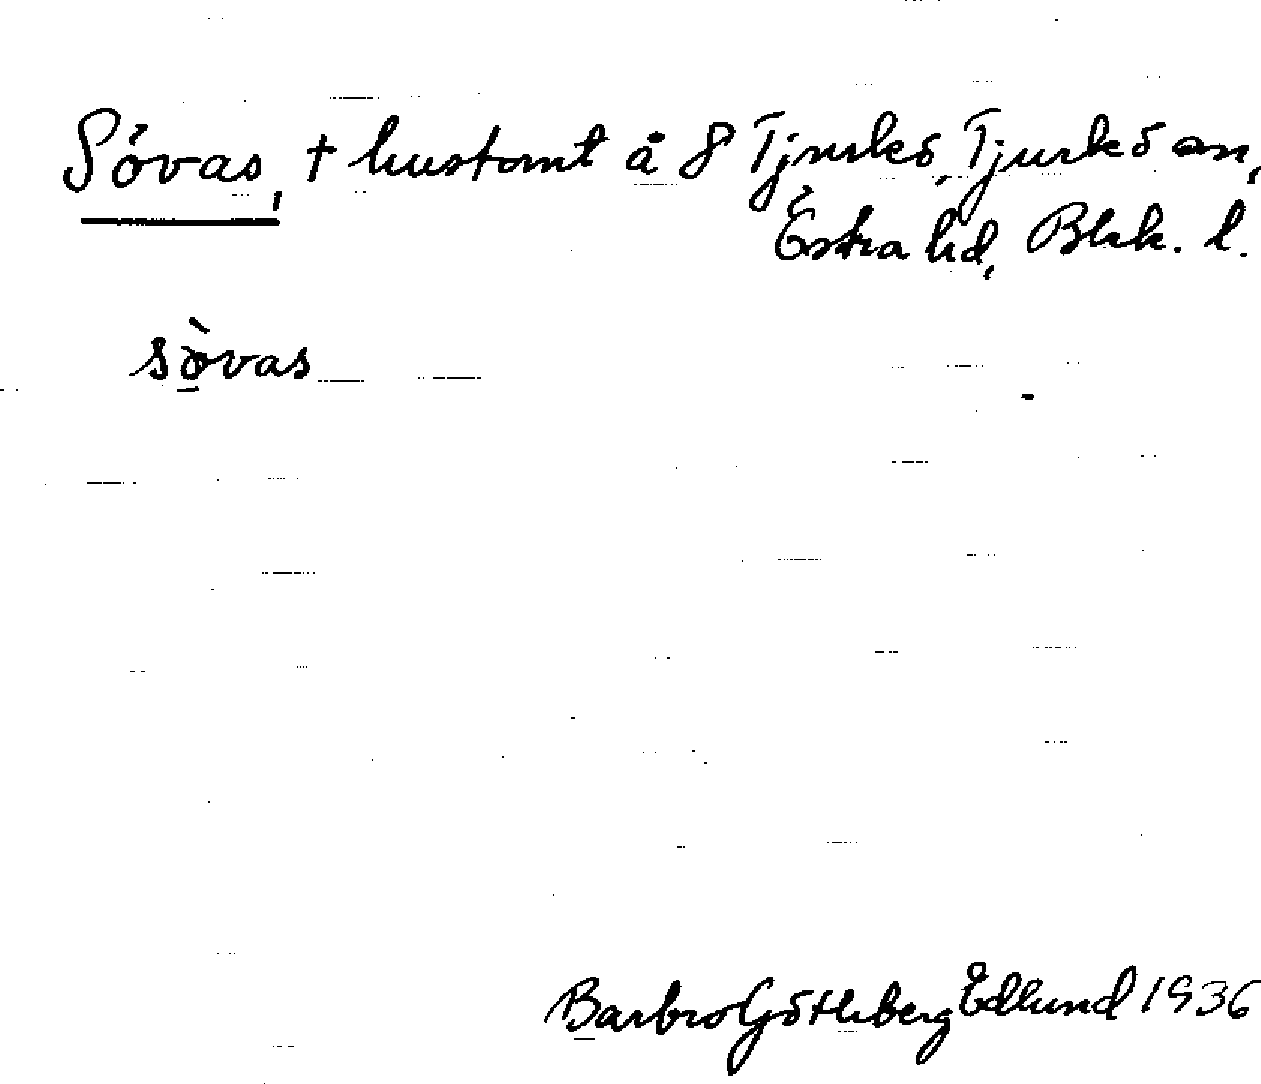 Sövas, † hustomt å 8 Tjurkö, Tjurkö sn,
Östra hd, Blek. l.
sò̱vas
Barbro Götheberg Edlund 1936